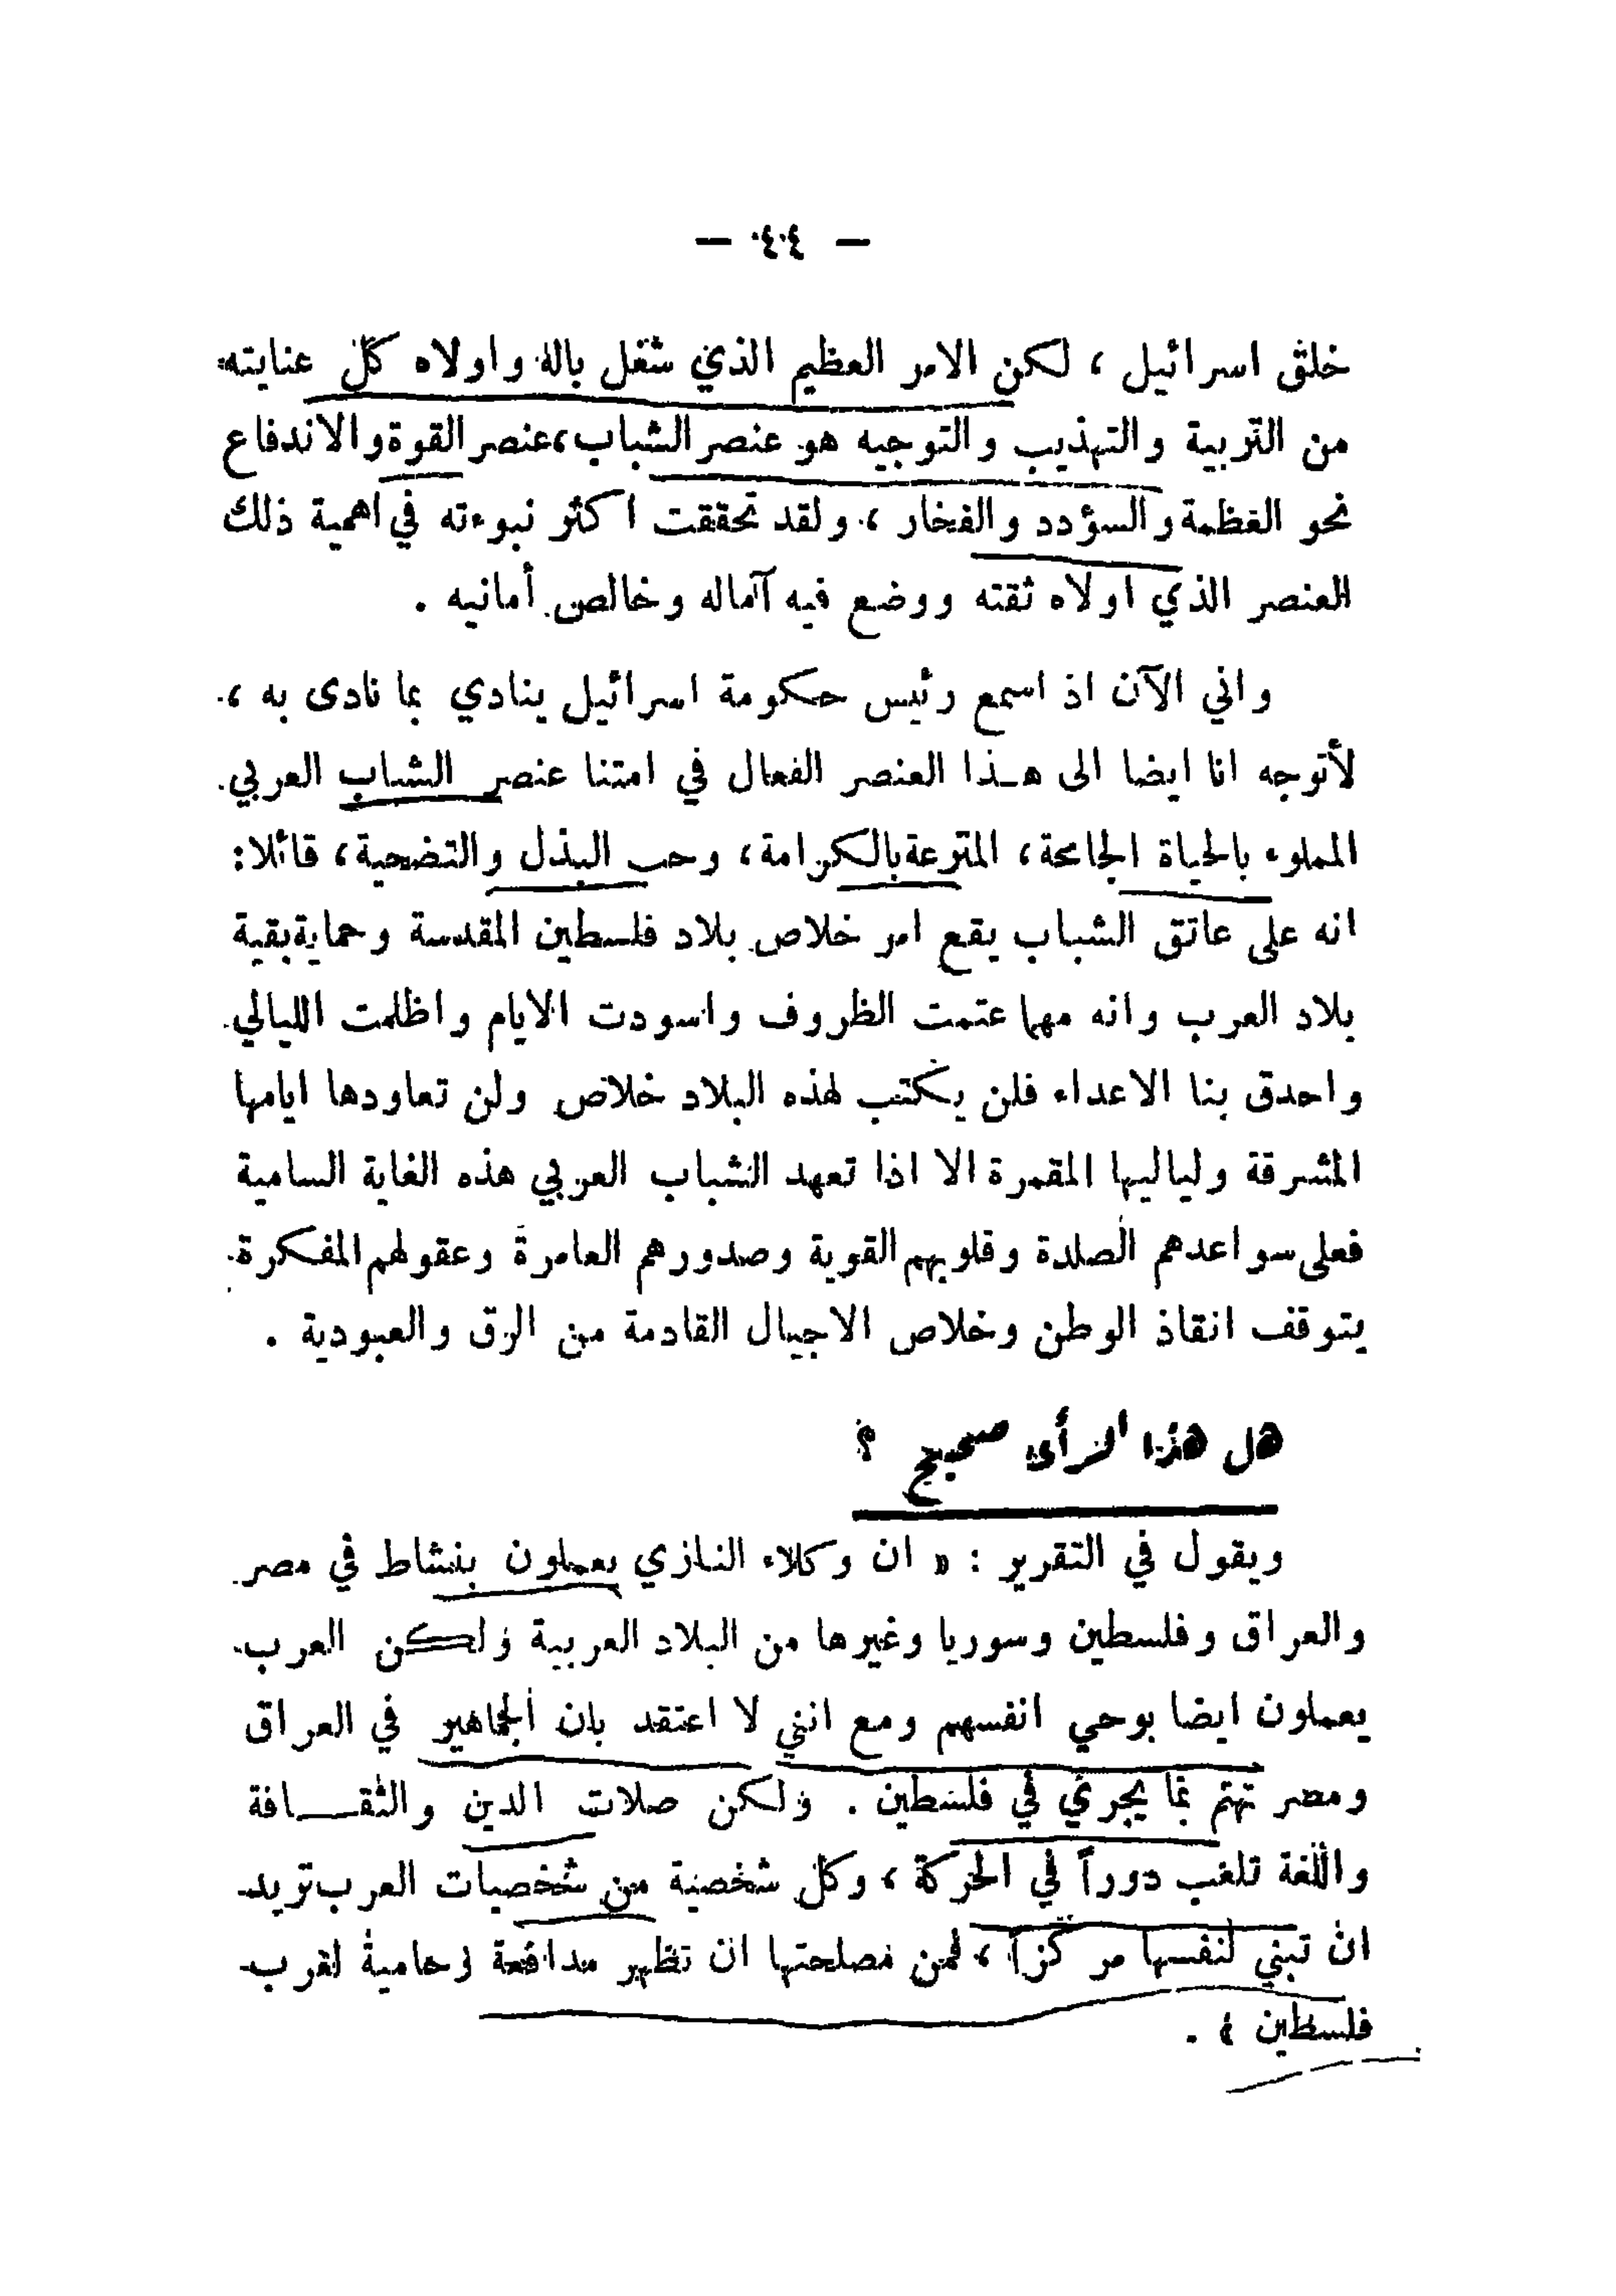 — ٤٠٤ —
خلق اسرائيل ، لكن الامر العظيم الذي شغل باله واولاه كل عنايته
من التربية والتهذيب والتوجيه هو عنصر الشباب ، عنصر القوة والاندفاع
نحو العظمة والسؤدد والفخار ، ولقد تحققت اكثر نبوءته في اهمية ذلك
العنصر الذي اولاه ثقته ووضع فيه آماله وخالص أمانيه .
واني الآن اذ اسمع رئيس حكومة اسرائيل ينادي بما نادى به ،
لأتوجه انا ايضا الى هـذا العنصر الفعال في امتنا عنصر الشباب العربي
المملوء بالحياة الجامحة ، المترعة بالكرامة ، وحب البذل والتضحية ، قائلا :
انه على عاتق الشباب يقع امر خلاص بلاد فلسطين المقدسة وحماية بقية
بلاد العرب وانه مهما عتمت الظروف واسودت الايام واظلمت الليالي
واحدق بنا الاعداء فلن يكتب لهذه البلاد خلاص ولن تعاودها ايامها
المشرقة ولياليها المقمرة الا اذا تعهد الشباب العربي هذه الغاية السامية
فعلى سواعدهم الصلدة وقلوبهم القوية وصدورهم العامرة وعقولهم المفكرة
يتوقف انقاذ الوطن وخلاص الاجيال القادمة من الرق والعبودية .
هل هذا الرأي صحيح ؟
ويقول في التقرير : « ان وكلاء النازي يعملون بنشاط في مصر
والعراق وفلسطين وسوريا وغيرها من البلاد العربية ولكن العرب
يعملون ايضا بوحي انفسهم ومع انني لا اعتقد بان الجماهير في العراق
ومصر تهتم بما يجري في فلسطين . ولكن صلات الدين والثقـــافة
واللغة تلعب دوراً في الحركة ، وكل شخصية من شخصيات العرب تريد
ان تبني لنفسها مركزاً ، فمن مصلحتها ان تظهر مدافعة وحامية لعرب
فلسطين » .